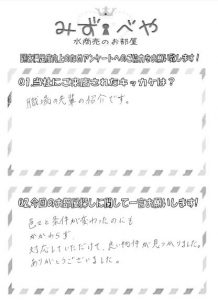 みず べや
水商売のお部屋
Q1.当社にご来店されたキッカケは?
職場の先輩の紹介です。
Q2.今回のお部屋探しに関して一言お願いします!
色々と条件が変わったのにも
かかわらず
対応していただけて、良い物件が見つかりました。
ありがとうございました。